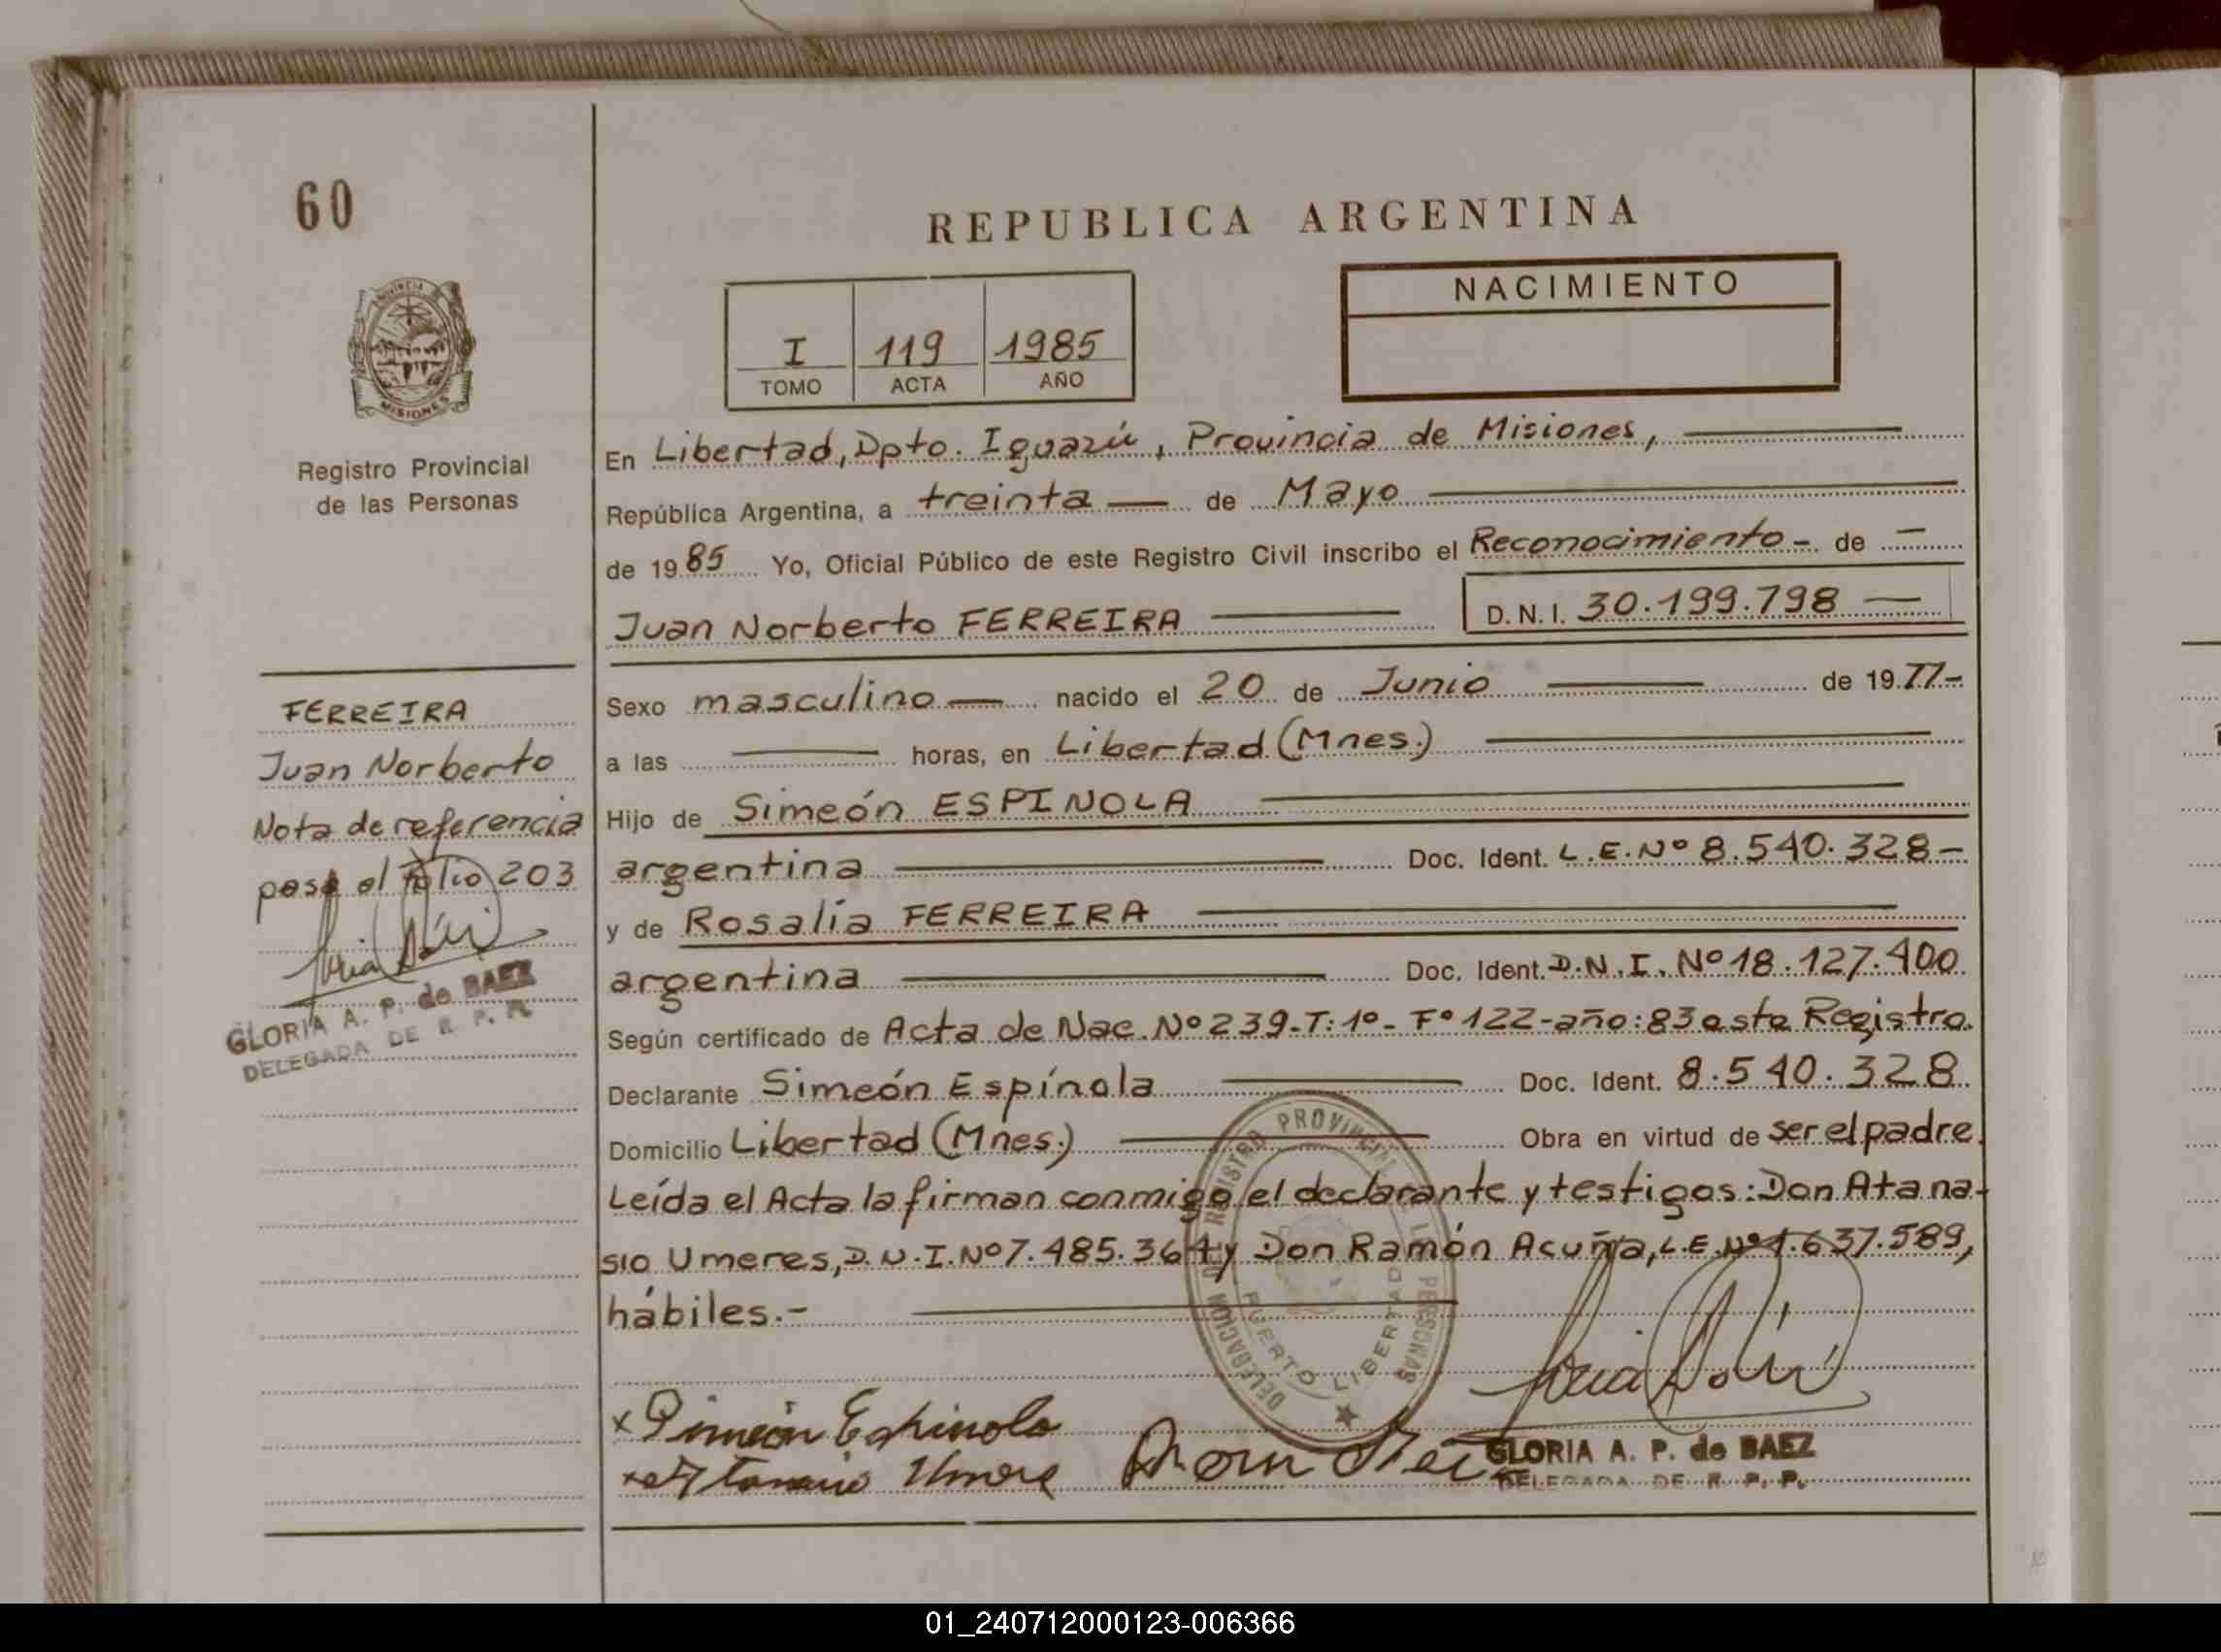 60
REPUBLICA ARGENTINA
NACIMIENTO
I 119 1985
TOMO ACTA AÑO
PROVINCIA DE
MISIONES
Registro Provincial
de las Personas
En Libertad, Dpto. Iguazú, Provincia de Misiones,
República Argentina, a treinta — de Mayo
de 1985 Yo, Oficial Público de este Registro Civil inscribo el Reconocimiento - de —
Juan Norberto FERREIRA D.N.I. 30.199.798 —
Sexo masculino — nacido el 20 de Junio — de 1977-
a las — horas, en Libertad (Mnes.)
Hijo de Simeón ESPINOLA
argentina — Doc. Ident. L.E.Nº 8.540.328-
y de Rosalía FERREIRA
argentina — Doc. Ident. D.N.I. Nº 18.127.400
Según certificado de Acta de Nac. Nº 239-T: 1º- Fº 122-año: 83 este Registro.
Declarante Simeón Espínola — Doc. Ident. 8.540.328
Domicilio Libertad (Mnes.) — Obra en virtud de ser el padre.
Leída el Acta la firman conmigo el declarante y testigos: Don Atana-
sio Umeres, D.N.I. Nº 7.485.364 y Don Ramón Acuña, L.E. Nº 1.637.589,
hábiles.-
FERREIRA
Juan Norberto
Nota de referencia
pasa al Folio 203
GLORIA A. P. de BAEZ
DELEGADA DE R. P. P.
DELEGACION DEL REGISTRO PROVINCIAL DE LAS PERSONAS
PUERTO LIBERTAD
x Simeón Espinola
GLORIA A. P. de BAEZ
DELEGADA DE R. P. P.
01_240712000123-006366